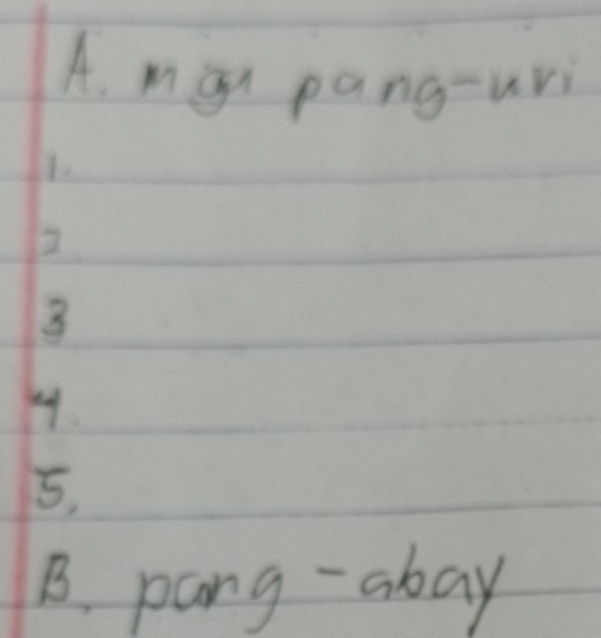 A. mga pang-uri
1.
2
3
4.
5.
B. pang-abay